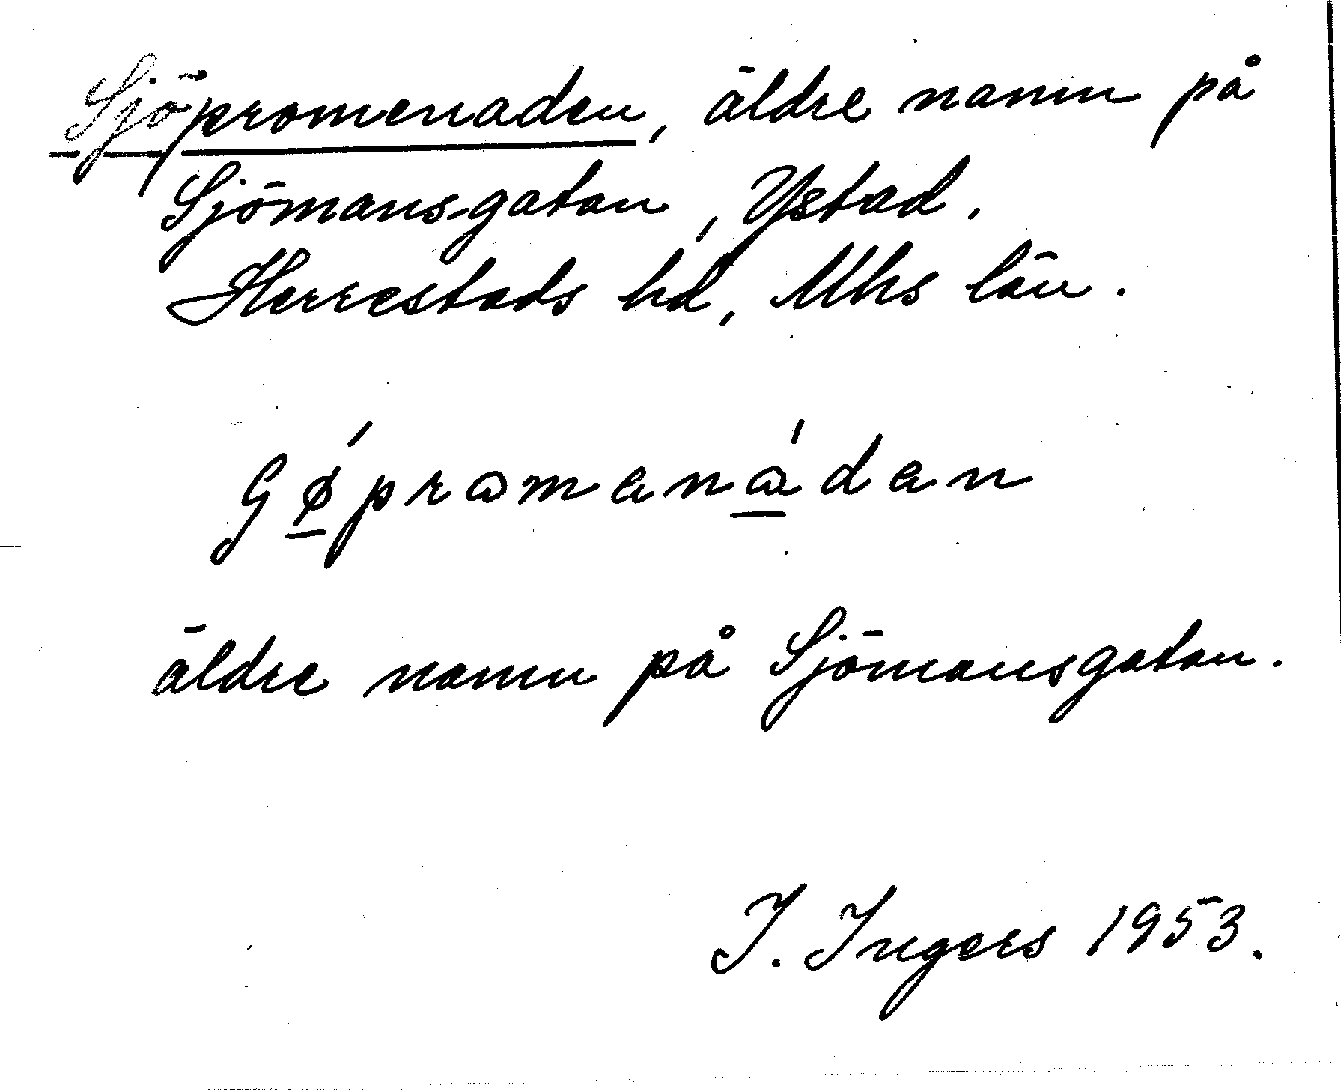 Sjöpromenaden, äldre namn på
Sjömansgatan, Ystad.
Herrestads hd, Mhs län.
Gǿ̱pramenạ́dan
äldre namn på Sjömansgatan.
I. Ingers 1953.